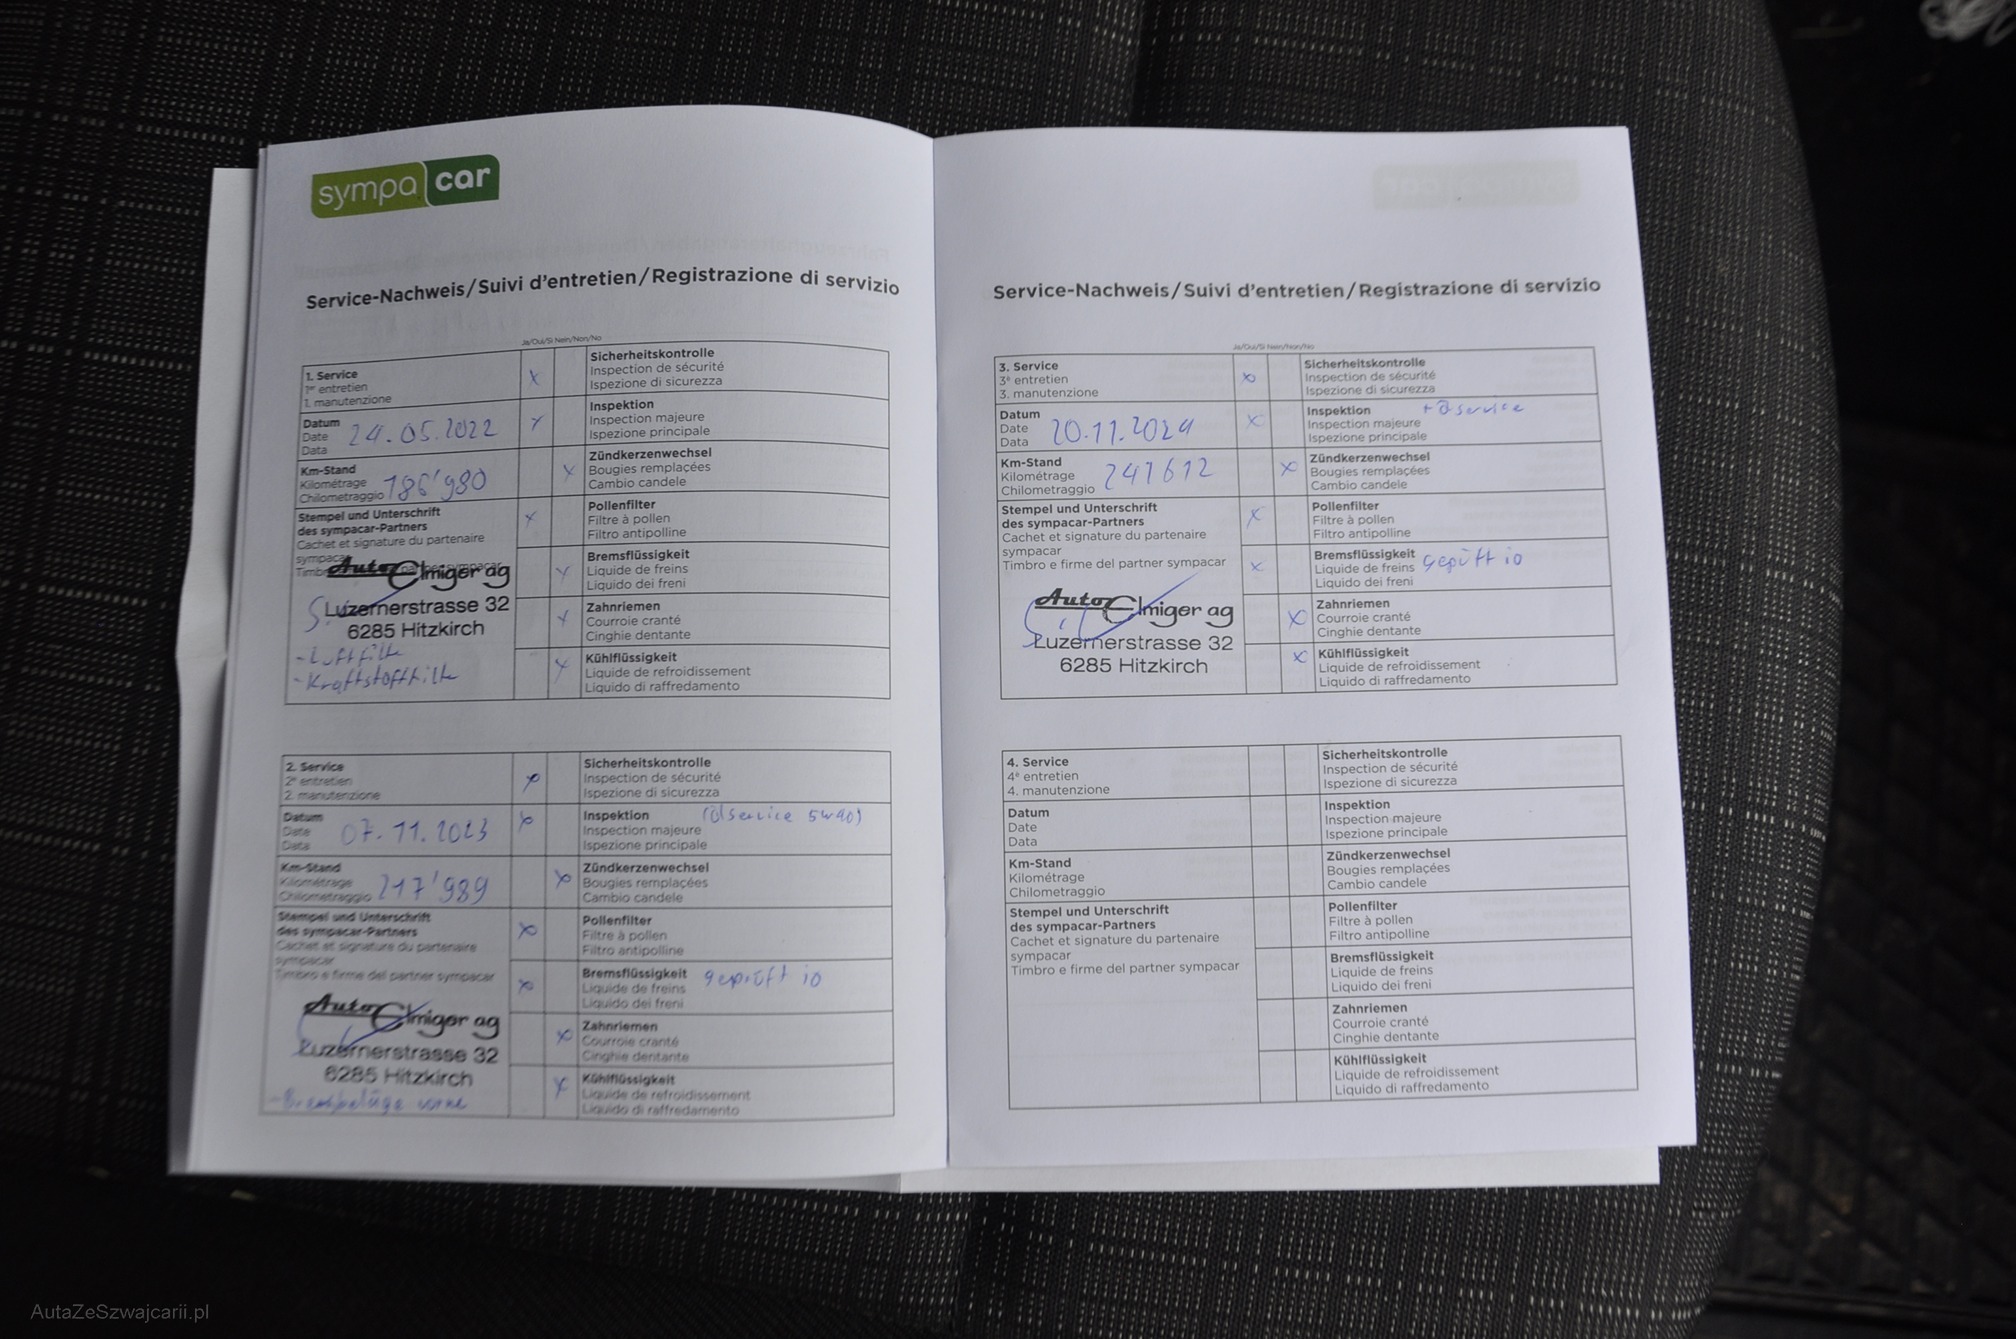 sympa car
Service-Nachweis/Suivi d'entretien/Registrazione di servizio
Ja/Oui/Si Nein/Non/No
1. Service
1er entretien
1. manutenzione
Sicherheitskontrolle
Inspection de sécurité
Ispezione di sicurezza
Datum
Date
Data
24.05.2022
Inspektion
Inspection majeure
Ispezione principale
Km-Stand
Kilométrage
Chilometraggio
186'980
Zündkerzenwechsel
Bougies remplacées
Cambio candele
Stempel und Unterschrift
des sympacar-Partners
Cachet et signature du partenaire
sympacar
Auto Elmiger ag
Luzernerstrasse 32
6285 Hitzkirch
- Luftfilter
- Kraftstofffilter
Pollenfilter
Filtre à pollen
Filtro antipolline
Bremsflüssigkeit
Liquide de freins
Liquido dei freni
Zahnriemen
Courroie cranté
Cinghie dentante
Kühlflüssigkeit
Liquide de refroidissement
Liquido di raffredamento
2. Service
2e entretien
2. manutenzione
Sicherheitskontrolle
Inspection de sécurité
Ispezione di sicurezza
Datum
Date
Data
07.11.2023
Inspektion (Ölservice 5w40)
Inspection majeure
Ispezione principale
Km-Stand
Kilométrage
Chilometraggio
217'989
Zündkerzenwechsel
Bougies remplacées
Cambio candele
Stempel und Unterschrift
des sympacar-Partners
Cachet et signature du partenaire
sympacar
Timbro e firme del partner sympacar
Auto Elmiger ag
Luzernerstrasse 32
6285 Hitzkirch
- Bremsbeläge vorne
Pollenfilter
Filtre à pollen
Filtro antipolline
Bremsflüssigkeit geprüft io
Liquide de freins
Liquido dei freni
Zahnriemen
Courroie cranté
Cinghie dentante
Kühlflüssigkeit
Liquide de refroidissement
Liquido di raffredamento
Service-Nachweis/Suivi d'entretien/Registrazione di servizio
Ja/Oui/Si Nein/Non/No
3. Service
3e entretien
3. manutenzione
Sicherheitskontrolle
Inspection de sécurité
Ispezione di sicurezza
Datum
Date
Data
20.11.2024
Inspektion + Ölservice
Inspection majeure
Ispezione principale
Km-Stand
Kilométrage
Chilometraggio
241612
Zündkerzenwechsel
Bougies remplacées
Cambio candele
Stempel und Unterschrift
des sympacar-Partners
Cachet et signature du partenaire
sympacar
Timbro e firme del partner sympacar
Auto Elmiger ag
Luzernerstrasse 32
6285 Hitzkirch
Pollenfilter
Filtre à pollen
Filtro antipolline
Bremsflüssigkeit geprüft io
Liquide de freins
Liquido dei freni
Zahnriemen
Courroie cranté
Cinghie dentante
Kühlflüssigkeit
Liquide de refroidissement
Liquido di raffredamento
4. Service
4e entretien
4. manutenzione
Sicherheitskontrolle
Inspection de sécurité
Ispezione di sicurezza
Datum
Date
Data
Inspektion
Inspection majeure
Ispezione principale
Km-Stand
Kilométrage
Chilometraggio
Zündkerzenwechsel
Bougies remplacées
Cambio candele
Stempel und Unterschrift
des sympacar-Partners
Cachet et signature du partenaire
sympacar
Timbro e firme del partner sympacar
Pollenfilter
Filtre à pollen
Filtro antipolline
Bremsflüssigkeit
Liquide de freins
Liquido dei freni
Zahnriemen
Courroie cranté
Cinghie dentante
Kühlflüssigkeit
Liquide de refroidissement
Liquido di raffredamento
AutaZeSzwajcarii.pl